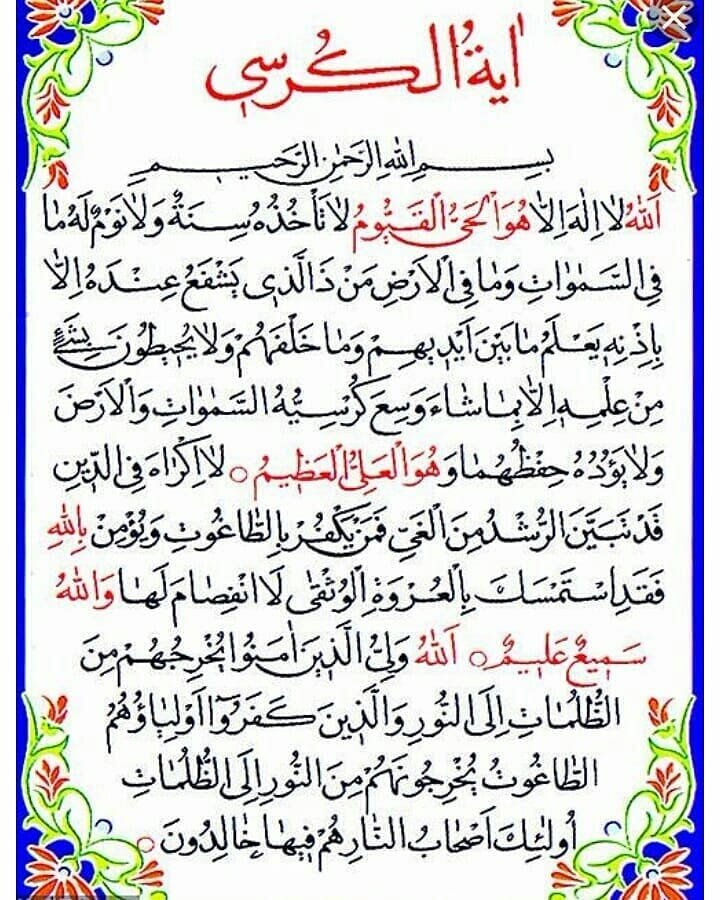 اٰيةُ الكُرسي
بسم اللهِ الرَّحمٰنِ الرَّحيم
اَللهُ لَا اِلٰهَ اِلَّا هُوَ الْحَيُّ الْقَيُّومُ لَا تَأْخُذُهُ سِنَةٌ وَلَا نَوْمٌ لَهُ مَا
فِي السَّمٰوَاتِ وَمَا فِي الْاَرْضِ مَنْ ذَا الَّذِي يَشْفَعُ عِنْدَهُ اِلَّا
بِاِذْنِهِ يَعْلَمُ مَا بَيْنَ اَيْدِيهِمْ وَمَا خَلْفَهُمْ وَلَا يُحِيطُونَ بِشَيْءٍ
مِنْ عِلْمِهِ اِلَّا بِمَا شَاءَ وَسِعَ كُرْسِيُّهُ السَّمٰوَاتِ وَالْاَرْضَ
وَلَا يَؤُدُهُ حِفْظُهُمَا وَهُوَ الْعَلِيُّ الْعَظِيمُ ○ لَا اِكْرَاهَ فِي الدِّينِ
قَدْ تَبَيَّنَ الرُّشْدُ مِنَ الْغَيِّ فَمَنْ يَكْفُرْ بِالطَّاغُوتِ وَيُؤْمِنْ بِاللهِ
فَقَدِ اسْتَمْسَكَ بِالْعُرْوَةِ الْوُثْقٰى لَا انْفِصَامَ لَهَا وَاللهُ
سَمِيعٌ عَلِيمٌ ○ اَللهُ وَلِيُّ الَّذِينَ اٰمَنُوا يُخْرِجُهُمْ مِنَ
الظُّلُمَاتِ اِلَى النُّورِ وَالَّذِينَ كَفَرُوا اَوْلِيَاؤُهُمُ
الطَّاغُوتُ يُخْرِجُونَهُمْ مِنَ النُّورِ اِلَى الظُّلُمَاتِ
اُولٰئِكَ اَصْحَابُ النَّارِ هُمْ فِيهَا خَالِدُونَ ○